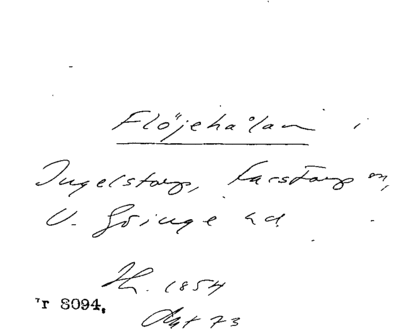 Flöjehålan i
Ingelstorp, Farstorp sn,
V. Göinge hd.
H. 1854
'r S094,
73